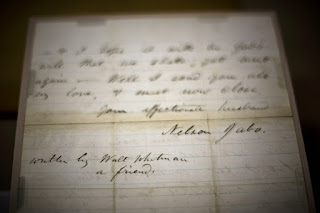 & I hope it will be God's
will that we shall yet meet
again — Well I send you all
my love, & must now close
Your affectionate husband
Nelson Jabo.
written by Walt Whitman
a friend.